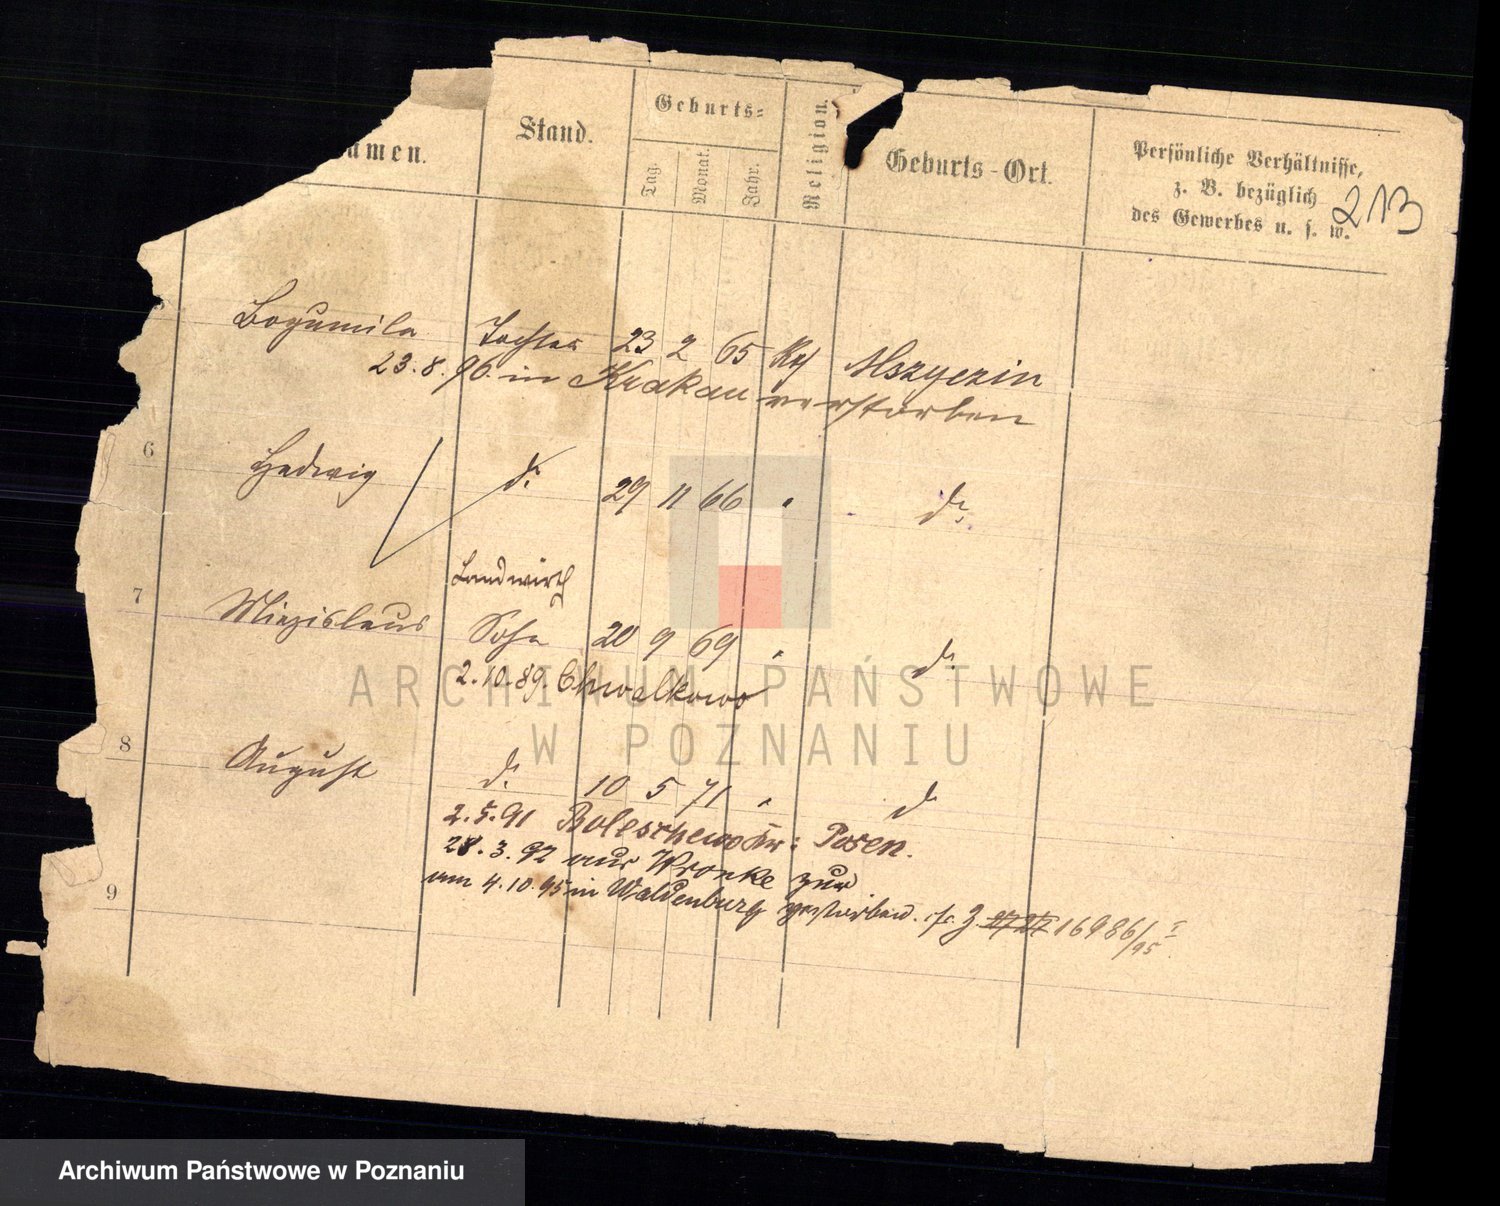 amen.
Stand.
Geburts=
Tag.
Monat.
Jahr.
Religion.
Geburts-Ort.
Persönliche Verhältnisse,
z. B. bezüglich
des Gewerbes u. s. w.
213
Bogumila Tochter 23 2 65 Mszyczin
23.8.96. in Krakau verstorben
6 Hedwig d. 29 11 66 " d.
Landwirth
7 Miezislaus Sohn 20 9 69 " d.
2.10.89. Chwalkowo
8 August d. 10 5 71 " d.
2.5.91 Kr: Posen.
28.3.92 aus Wronke zur
9 am 4.10.95 in Waldenburg gestorben. cfr. J. 16986/95 I
ARCHIWUM PAŃSTWOWE
W POZNANIU
Archiwum Państwowe w Poznaniu